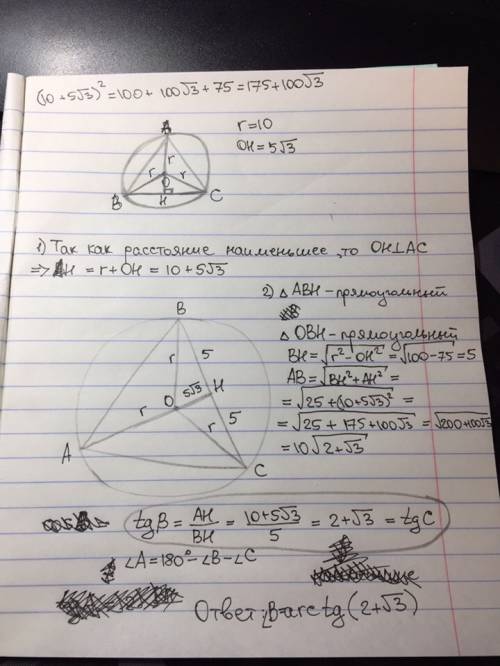 (10 + 5√3)² = 100 + 100√3 + 75 = 175 + 100√3
A
r = 10
OH = 5√3
r
r
O
r
B
H
C
1) Так как расстояние наименьшее, то OH⊥AC
=> AH = r + OH = 10 + 5√3
2) △ ABH - прямоугольный
△ OBH - прямоугольный
BH = √(r² - OH²) = √(100 - 75) = 5
AB = √(BH² + AH²) =
= √(25 + (10 + 5√3)²) =
= √(25 + 175 + 100√3) = √(200 + 100√3)
= 10√(2 + √3)
B
r
5
5√3
H
O
r
5
r
A
C
tgB = AH/BH = (10 + 5√3)/5 = 2 + √3 = tgC
∠A = 180° - ∠B - ∠C
Ответ: ∠B = arctg(2 + √3)